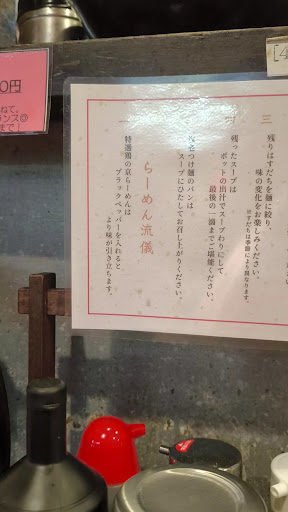 三
残りはすだちを麺に絞り、
味の変化をお楽しみください。
※すだちは季節により異なります。
残ったスープは
ポットの出汁でスープわりにして
最後の一滴までご堪能ください。
つけ麺のパンは
スープにひたしてお召し上がりください。
らーめん流儀
特選鶏の京らーめんは
ブラックペッパーを入れると
より味が引き立ちます。
0円
ねて。
ランス@
まで!